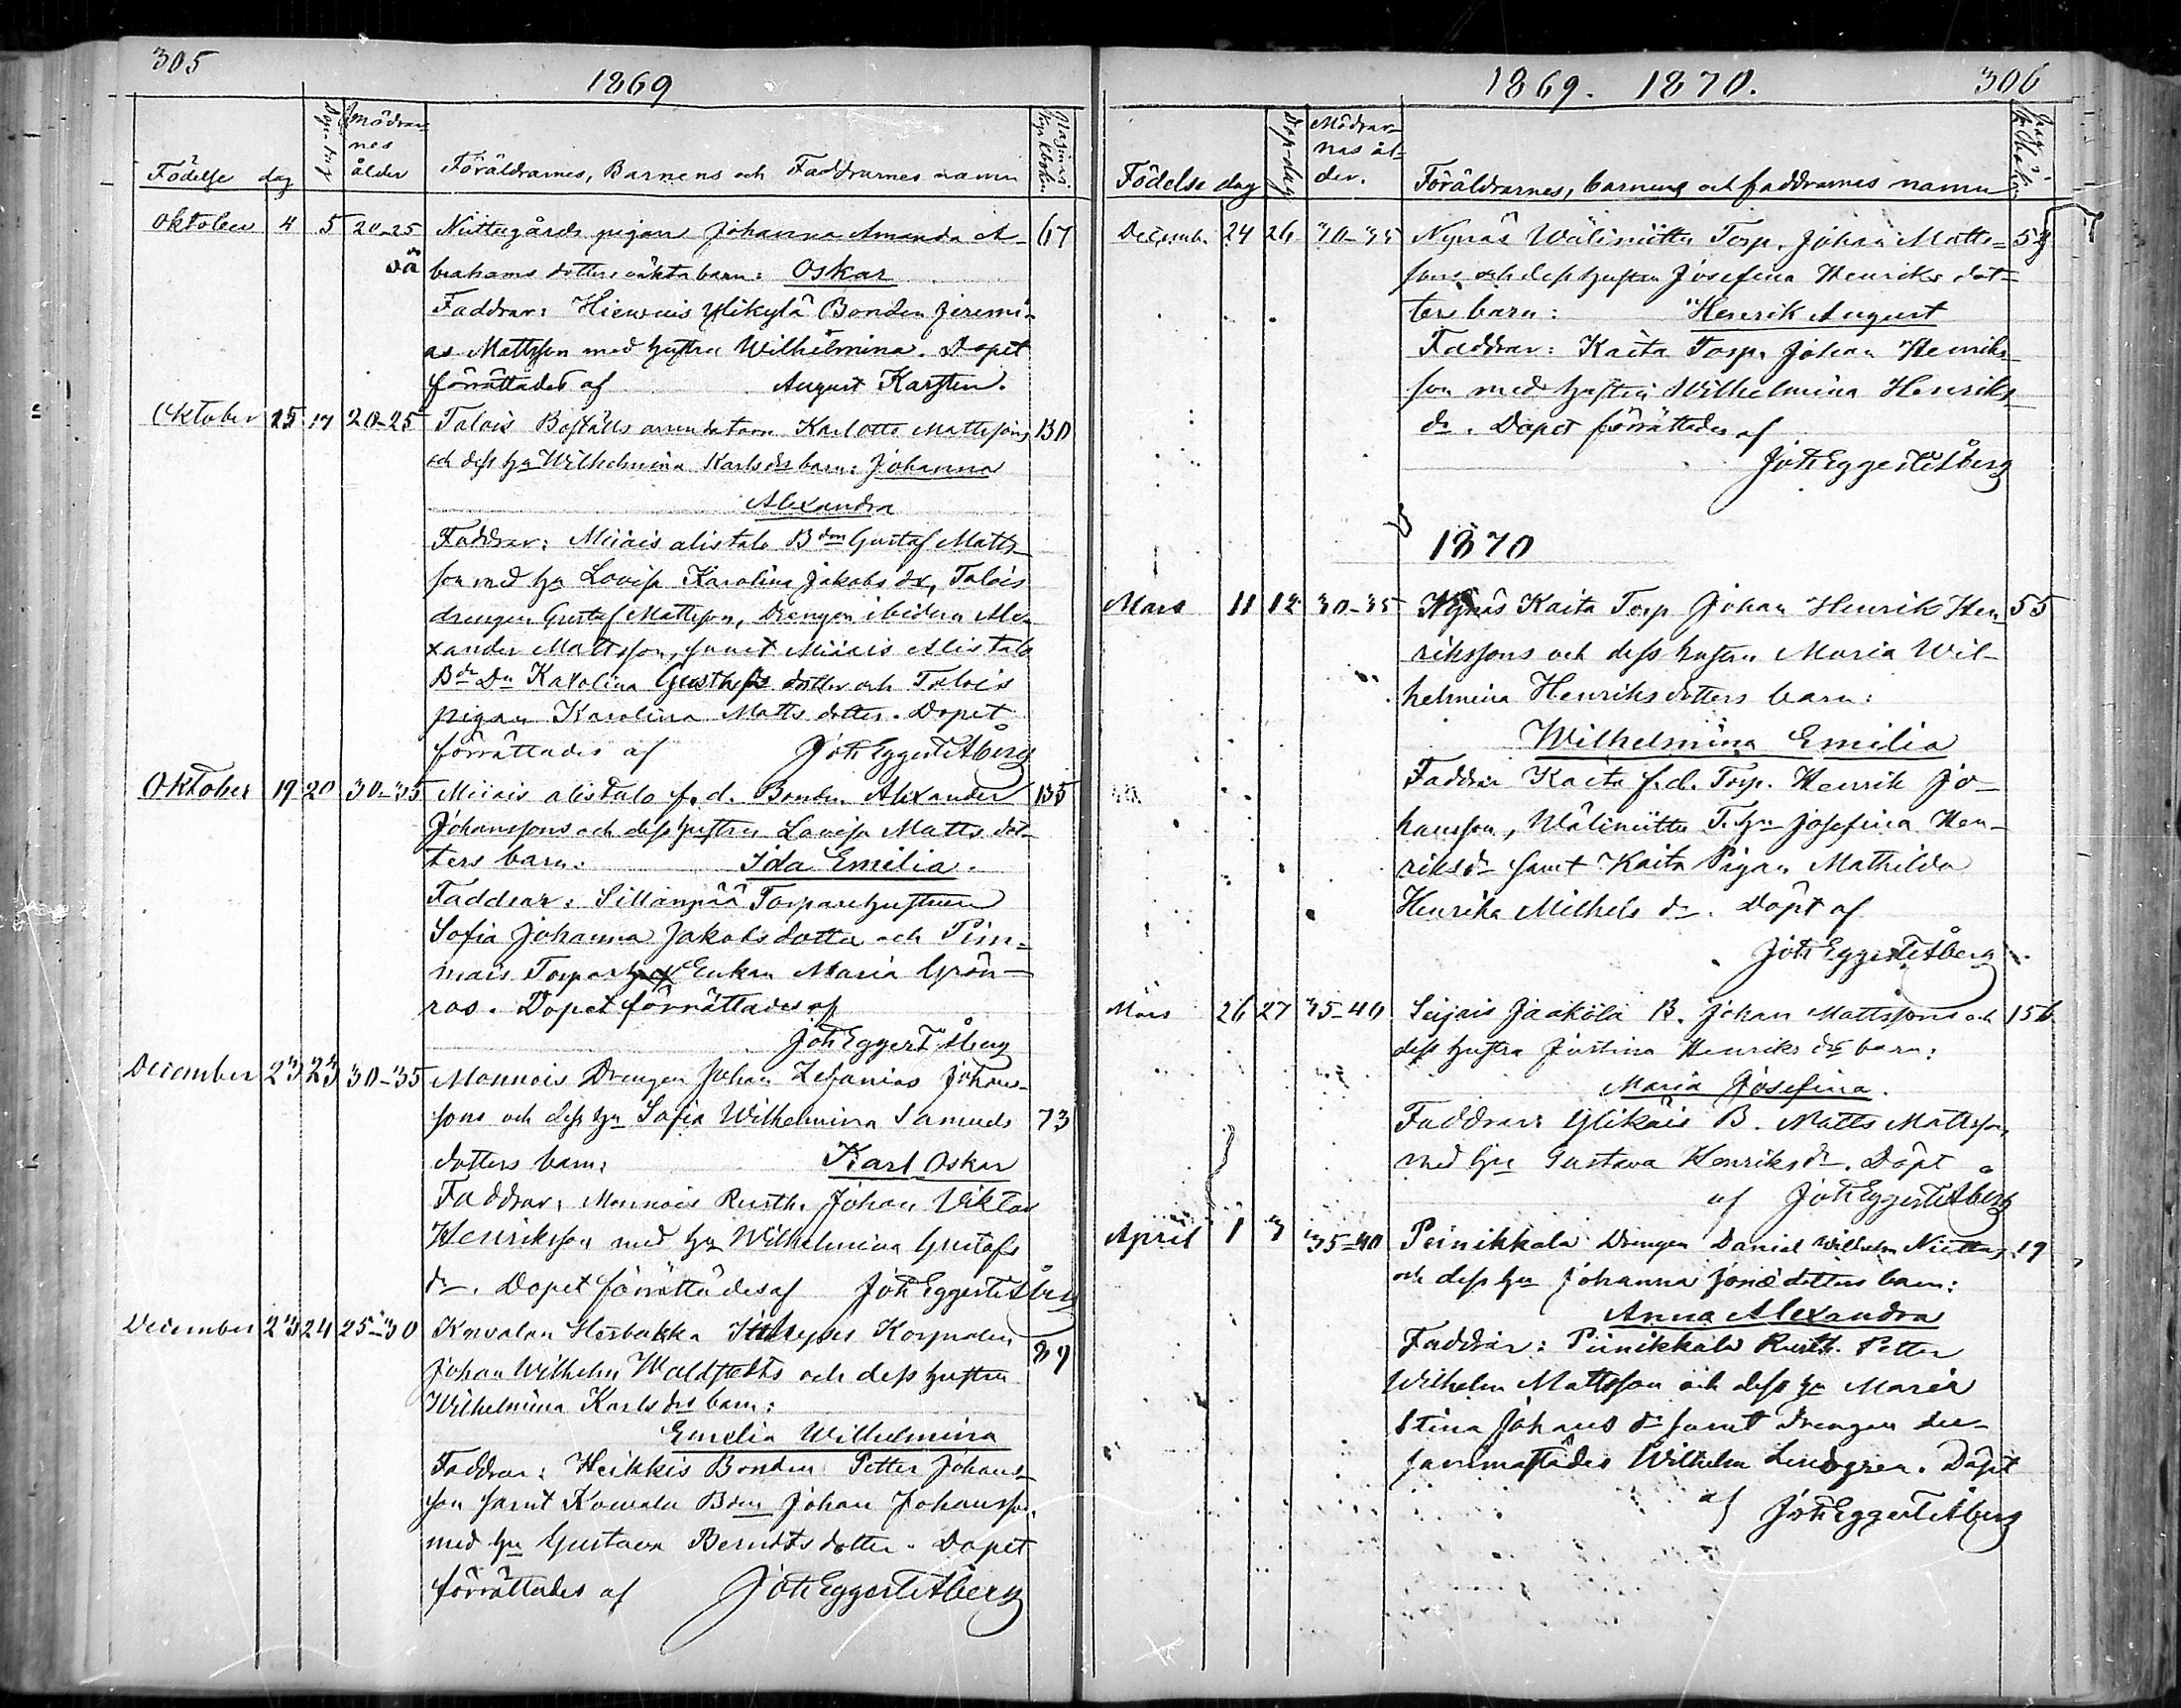 305
1869
Födelse dag
Dop-dag
Mödrar-
nes
ålder
Föräldrarnes, Barnens och Faddrarnes namn
Oktober 4 5 20-25 Niittugårds pigan Johanna Amanda A- 67
brahams dotters oäkta barn: Oskar
Faddrar: Ylikylä Bonden Jeremi-
as Mattsson med hustru Wilhelmina. Dopet
förrättades af August Karsten.
Oktober 15 17 20-25 Talois Boställs arrendatorn Karl Otto Mattssons 130
och dess hu Wilhelmina Karls drs barn: Johanna
Alexandra
Faddrar: Miiais alistalo Bden Gustaf Matts-
son med hu Lovisa Karolina Jakobs dr, Talois
drengen Gustaf Mattsson, Drengen ibidem Ale-
xander Mattsson, samt Miiais Alistalo
Bde Dn Karolina Gustafs dotter och Talois
pigan Karolina Matts dotter. Dopet
förrättades af Joh Eggert Åberg
Oktober 19 20 30-35 Miiais alistalo f.d. Bonden Alexander 135
Johanssons och dess hustru Lovisa Matts dot-
ters barn: Ida Emilia.
Faddrar: Sillanpää Torpare hustrun
Sofia Johanna Jakobs dotter och Pim-
mais Torpar Enkan Maria Grön-
ros. Dopet förrättades af
Joh Eggert Åberg
December 23 23 30-35 Monnois Drengen Johan Zefanias Johans-
sons och dess hu Sofia Wilhelmina Samuels 73
dotters barn: Karl Oskar
Faddrar: Monnois Rusth. Johan Viktor
Henriksson med hu Wilhelmina Gustafs
dr. Dopet förrättades af Joh Eggert Åberg
December 23 24 25-30 Korpralen 89
Johan Wilhelm Waldstedts och dess hustru
Wilhelmina Karls drs barn:
Emelia Wilhelmina
Faddrar: Heikkis Bonden Petter Johans-
son samt Bden Johan Johansson
med hu Gustava Berndts dotter. Dopet
förrättades af Joh Eggert Åberg
1869. 1870. 306
Födelse dag
Dop-dag
Mödrar-
nas ål-
der.
Föräldrarnes, barnens och faddrarnes namn
Decemb. 24 26 30-35 Nynäs Wälimiittu Torp. Johan Matts-
sons och dess hustru Josefina Henriks dot-
ters barn: Henrik August
Faddrar: Kaita Torp. Johan Henriks-
son med hustru Wilhelmina Henriks
dr. Dopet förrättades af
Joh Eggert Åberg
1870
Mars 11 12 30-35 Nynäs Kaita Torp Johan Henrik Hen- 55
rikssons och dess hustru Maria Wil-
helmina Henriks dotters barn:
Wilhelmina Emilia
Faddrar Kaita f.d. Torp. Henrik Jo-
hansson, Wälimiittu T. hu Josefina Hen-
riks dr samt Kaita Pigan Mathilda
Henrika Michels dr. Döpt af
Joh Eggert Åberg
Mars 26 27 35-40 Jaakola B. Johan Mattssons och 156
dess hustru Justina Henriks drs barn:
Maria Josefina.
Faddrar: B. Matts Mattsson,
med hu Gustava Henriks dr. Döpt
af Joh Eggert Åberg
April 1 3 35-40 Peinikkala Drengen Daniel Wilhelm 19
och dess hu Johanna Jonæ dotters barn:
Anna Alexandra
Faddrar: Peinikkala Rusth. Petter
Wilhelm Mattsson och dess hu Maria
Stina Johans dr samt Drengen der-
sammastädes Wilhelm Lindgren. Döpt
af Joh Eggert Åberg